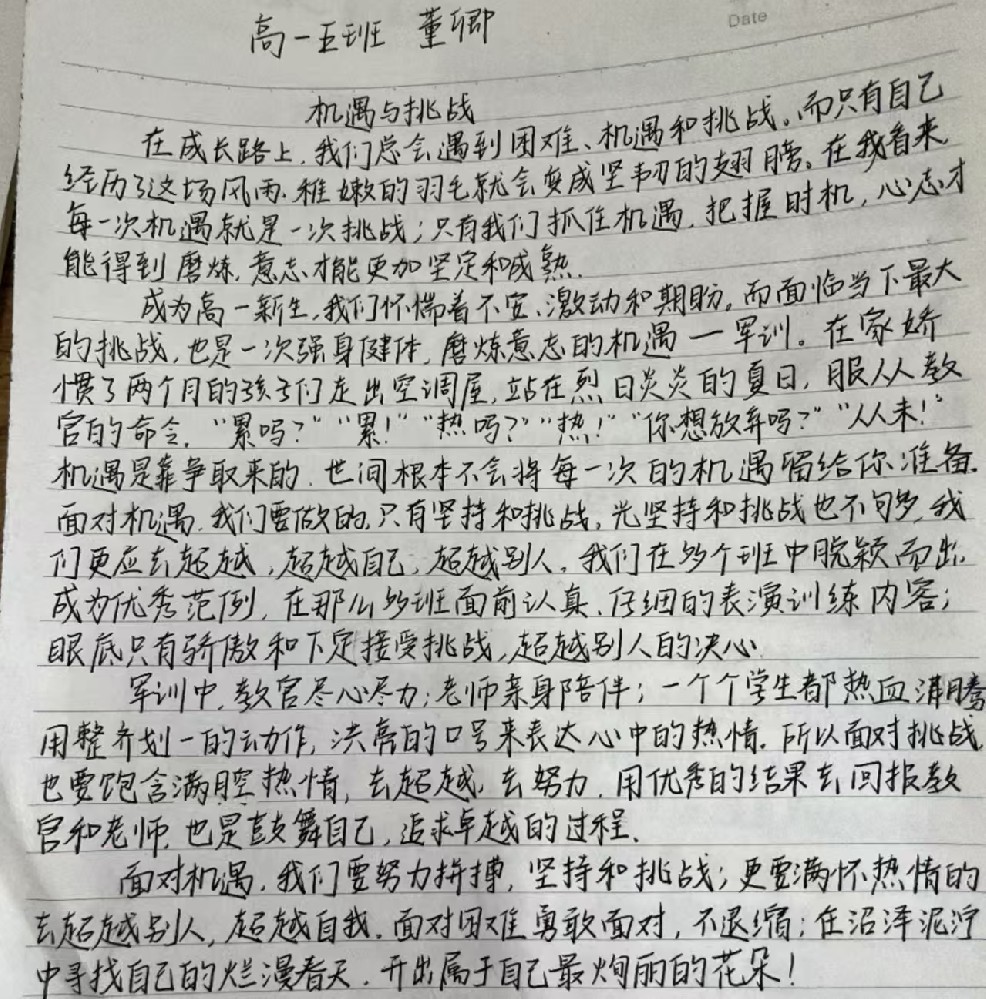 高一五班 董卿
Date
机遇与挑战
在成长路上，我们总会遇到困难、机遇和挑战。而只有自己
经历了这场风雨，稚嫩的羽毛就会变成坚韧的翅膀。在我看来
每一次机遇就是一次挑战；只有我们抓住机遇，把握时机，心志才
能得到磨炼，意志才能更加坚定和成熟。
成为高一新生，我们怀惴着不安、激动和期盼，而面临当下最大
的挑战，也是一次强身健体，磨炼意志的机遇—军训。在家娇
惯了两个月的孩子们走出空调屋，站在烈日炎炎的夏日，服从教
官的命令，“累吗？”“累！”“热吗？”“热！”“你想放弃吗？”“从未！”
机遇是靠争取来的，世间根本不会将每一次的机遇留给你准备。
面对机遇，我们要做的，只有坚持和挑战，光坚持和挑战也不够，我
们更应去超越，超越自己，超越别人。我们在多个班中脱颖而出，
成为优秀范例，在那么多班面前认真、仔细的表演训练内容；
眼底只有骄傲和下定接受挑战，超越别人的决心。
军训中，教官尽心尽力；老师亲身陪伴；一个个学生都热血沸腾
用整齐划一的动作，洪亮的口号来表达心中的热情。所以面对挑战，
也要饱含满腔热情，去超越，去努力，用优秀的结果去回报教
官和老师，也是鼓舞自己，追求卓越的过程。
面对机遇，我们要努力拼搏，坚持和挑战；更要满怀热情的
去超越别人，超越自我。面对困难勇敢面对，不退缩；在沼泽泥泞
中寻找自己的烂漫春天，开出属于自己最绚丽的花朵！